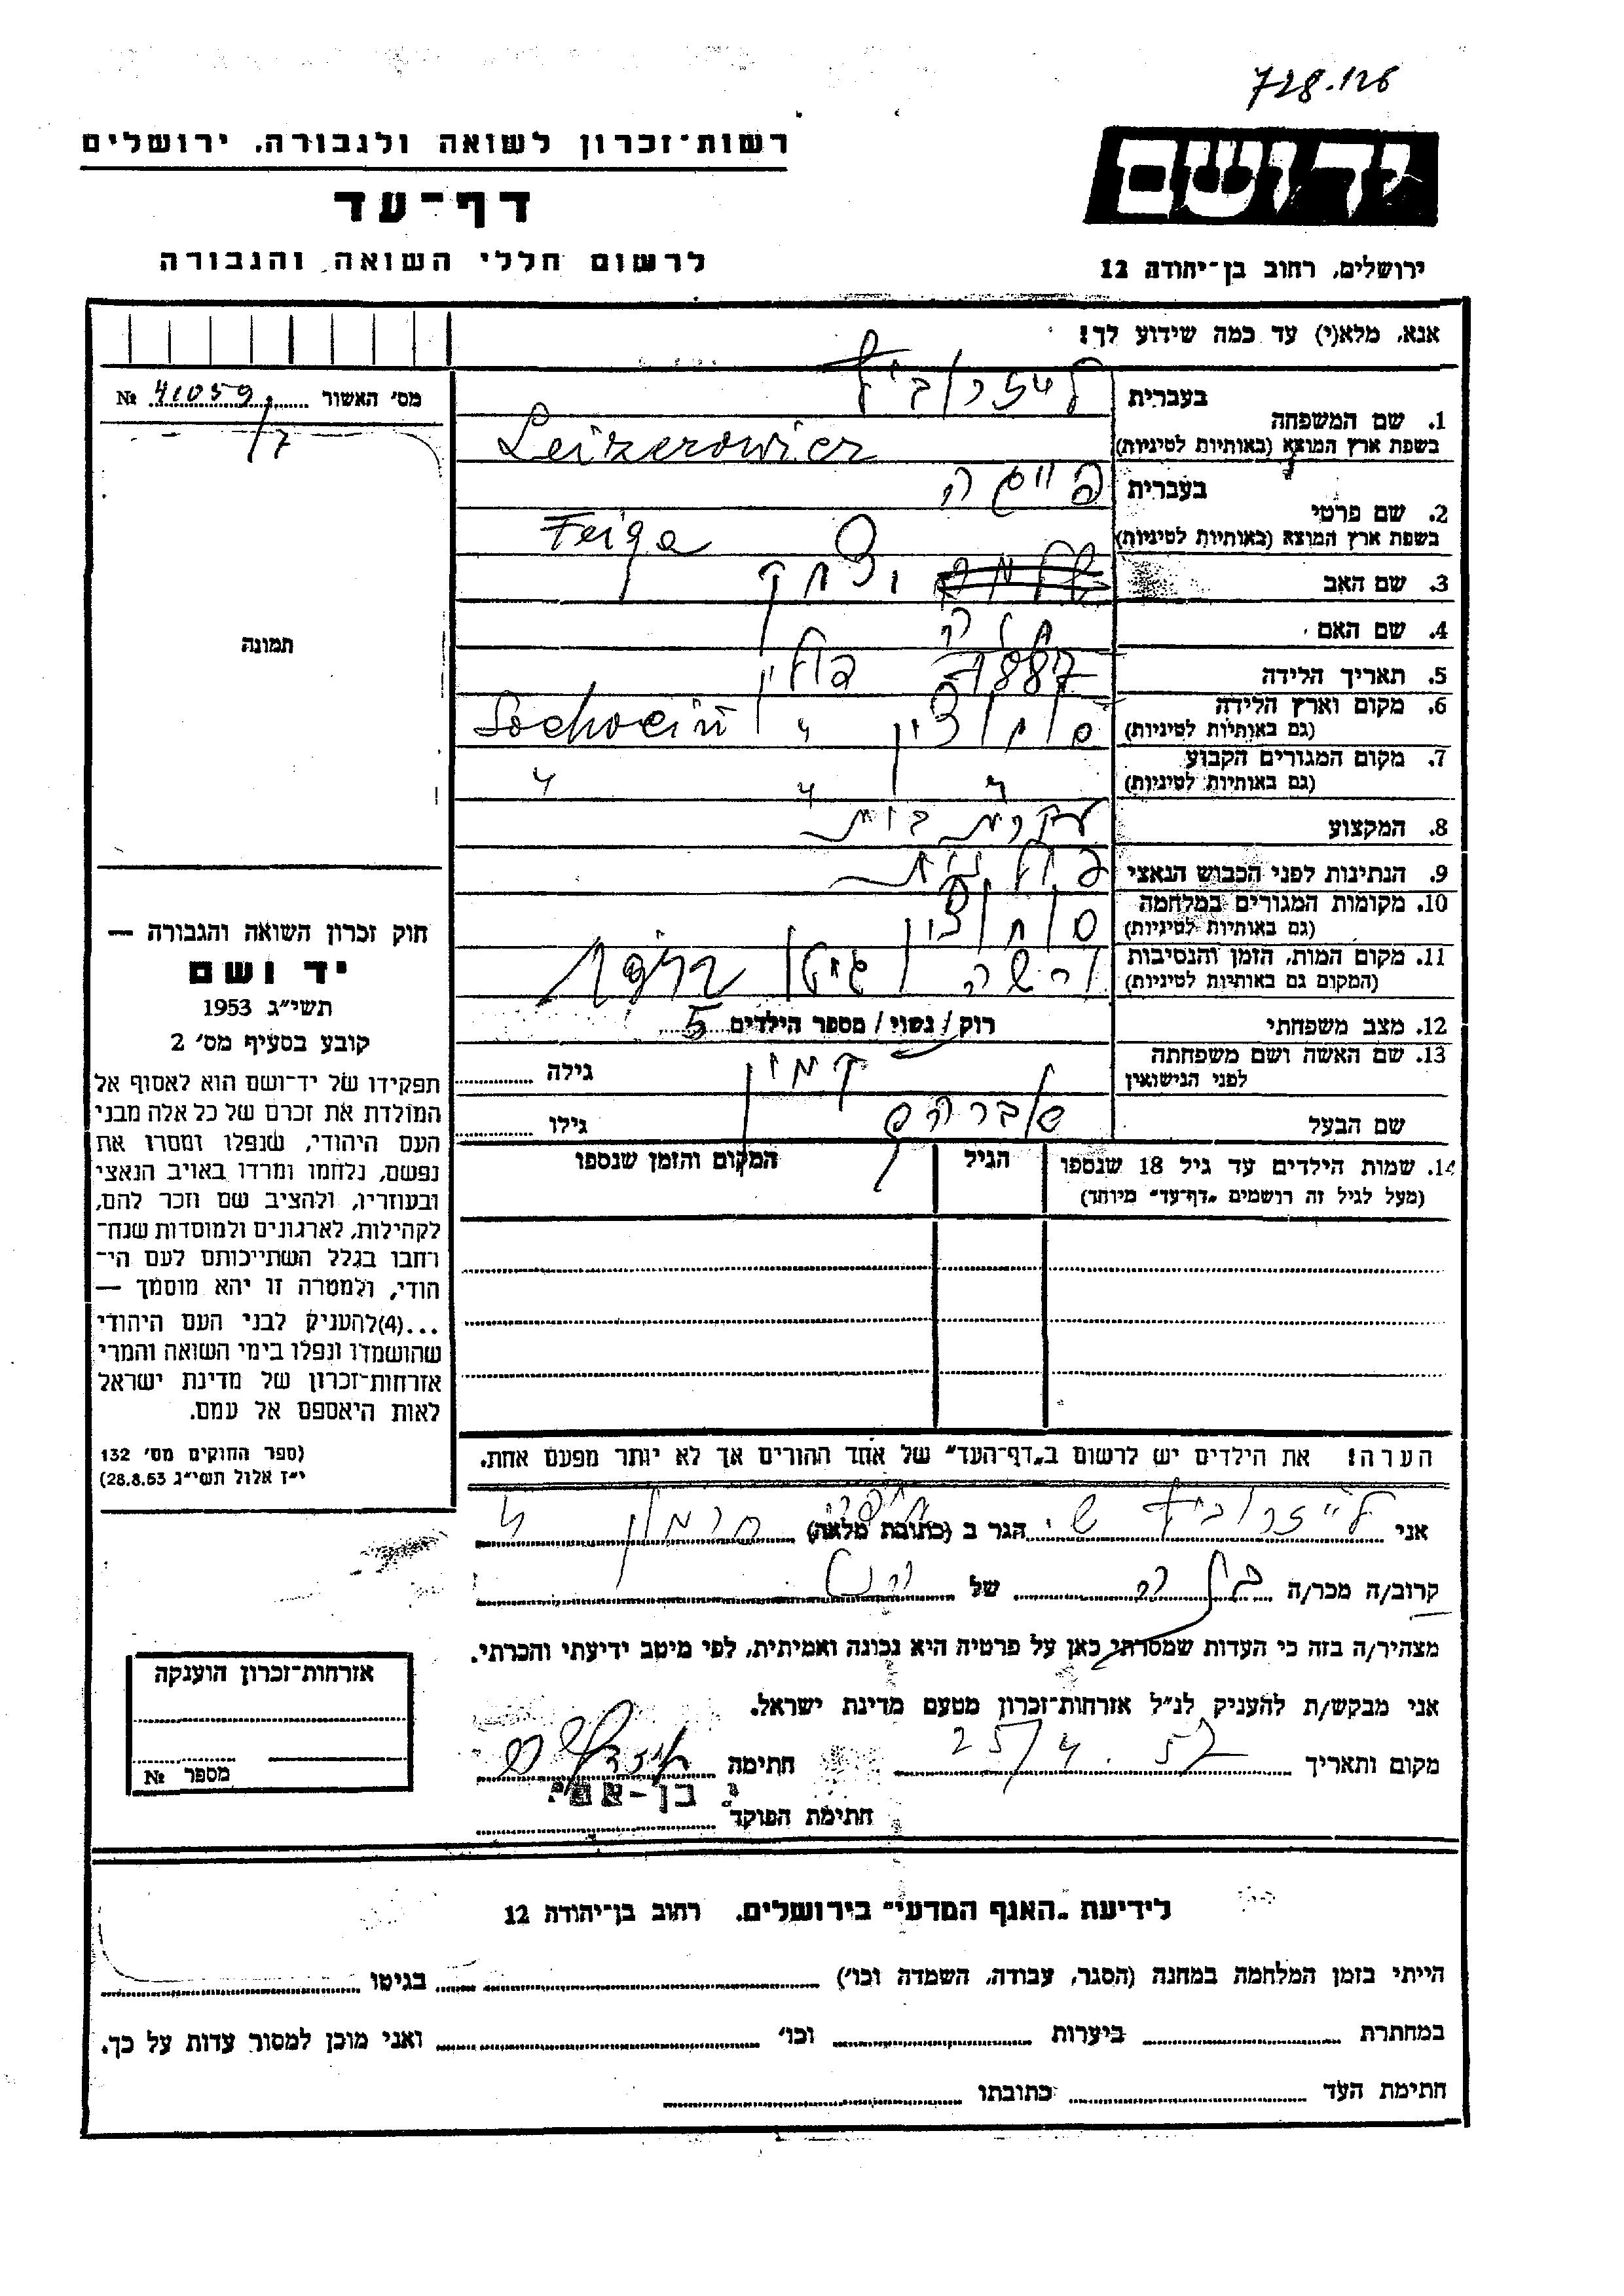 728.126
רשות־זכרון לשואה ולגבורה, ירושלים
דף־עד
לרשום חללי השואה והגבורה
יד ושם
ירושלים, רחוב בן־יהודה 12
אנא, מלא(י) עד כמה שידוע לך!
מס׳ האשור 41059 №
/7
תמונה
1. שם המשפחה
בעברית
בשפת ארץ המוצא (באותיות לטיניות) Leizerowicz
2. שם פרטי
בעברית פייגה
בשפת ארץ המוצא (באותיות לטיניות) Feiga
3. שם האב יצחק
4. שם האם
5. תאריך הלידה 1887 פולין
6. מקום וארץ הלידה
(גם באותיות לטיניות) סוחוצין " Sochocin
7. מקום המגורים הקבוע
(גם באותיות לטיניות) " " "
8. המקצוע עקרת בית
9. הנתינות לפני הכבוש הנאצי פולנית
10. מקומות המגורים במלחמה
(גם באותיות לטיניות) סוחוצין
11. מקום המות, הזמן והנסיבות
(המקום גם באותיות לטיניות) ורשה גיטו
12. מצב משפחתי רוק / נשוי / מספר הילדים 5
13. שם האשה ושם משפחתה
לפני הנישואין גילה
שם הבעל אברהם גילו
14. שמות הילדים עד גיל 18 שנספו
(מעל לגיל זה רושמים „דף־עד” מיוחד)
הגיל
המקום והזמן שנספו
הערה! את הילדים יש לרשום ב„דף־העד” של אחד ההורים אך לא יותר מפעם אחת.
חוק זכרון השואה והגבורה —
יד ושם
תשי״ג 1953
קובע בסעיף מס׳ 2
תפקידו של יד־ושם הוא לאסוף אל
המולדת את זכרם של כל אלה מבני
העם היהודי, שנפלו ומסרו את
נפשם, נלחמו ומרדו באויב הנאצי
ובעוזריו, ולהציב שם וזכר להם,
לקהילות, לארגונים ולמוסדות שנח־
רחבו בגלל השתייכותם לעם הי־
הודי, ולמטרה זו יהא מוסמך —
...(4)להעניק לבני העם היהודי
שהושמדו ונפלו בימי השואה והמרי
אזרחות־זכרון של מדינת ישראל
לאות היאספם אל עמם.
(ספר החוקים מס׳ 132
י״ז אלול תשי״ג 28.8.53)
אני הגר ב (כתובת מלאה)
קרוב/ה מכר/ה כלה של
מצהיר/ה בזה כי העדות שמסרתי כאן על פרטיה היא נכונה ואמיתית, לפי מיטב ידיעתי והכרתי.
אני מבקש/ת להעניק לנ״ל אזרחות־זכרון מטעם מדינת ישראל.
מקום ותאריך 25/4.57 חתימה
י. בן-עמי
חתימת הפוקד
אזרחות־זכרון הוענקה
מספר №
לידיעת „האגף המדעי” בירושלים, רחוב בן־יהודה 12
הייתי בזמן המלחמה במחנה (הסגר, עבודה, השמדה וכו׳) בגיטו
במחתרת ביערות וכו׳ ואני מוכן למסור עדות על כך.
חתימת העד כתובתו